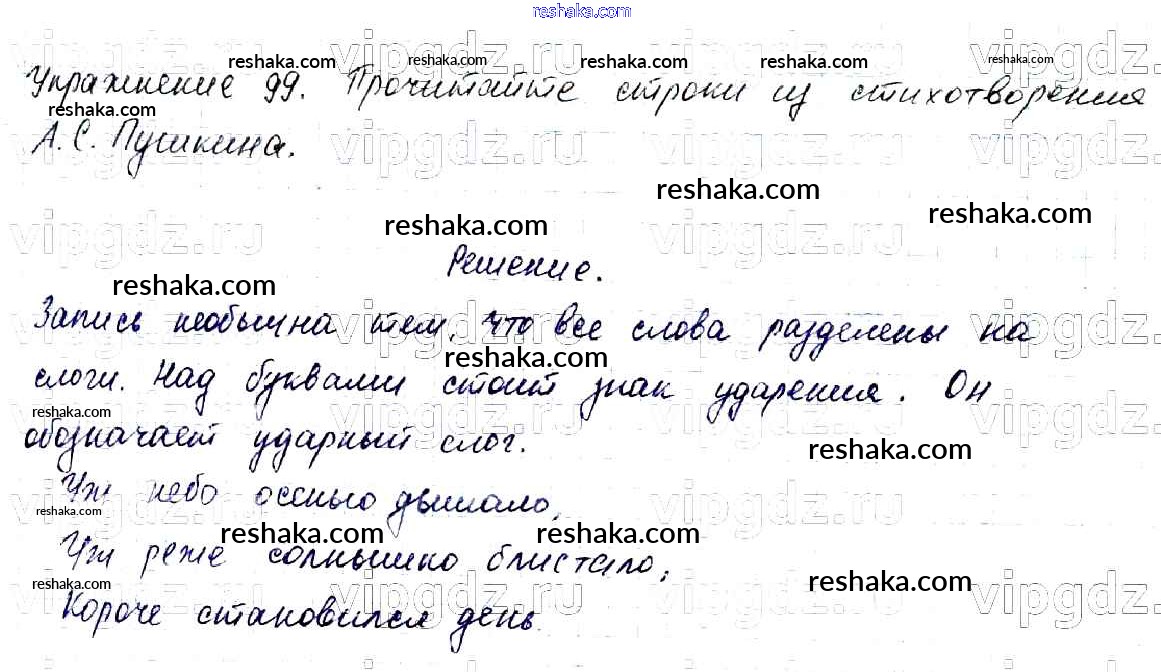 reshaka.com
Упражнение 99. Прочитайте строки из стихотворения
А.С. Пушкина.
Решение.
Запись необычна тем, что все слова разделены на
слоги. Над буквами стоит знак ударения. Он
обозначает ударный слог.
Уж небо осенью дышало,
Уж реже солнышко блистало,
Короче становился день.